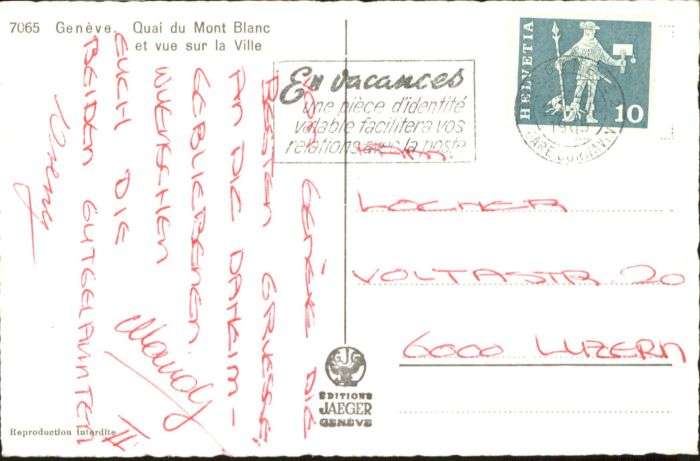 7065 Genève Quai du Mont Blanc
et vue sur la Ville
En vacances
une pièce d'identité
valable facilitera vos
relations avec la poste
HELVETIA
10
GARE CORNAVIN
GENÈVE DIE
BESTEN GRUESSE,
AN DIE DAHEIM-
GEBLIEBENEN.
WUENSCHEN
EUCH DIE
BEIDEN GUTGELAUNTEN
Vreny
FAM.
LOCHER
VOLTASTR. 20
6000 LUZERN
ÉDITIONS
JAEGER
GENÈVE
Reproduction interdite